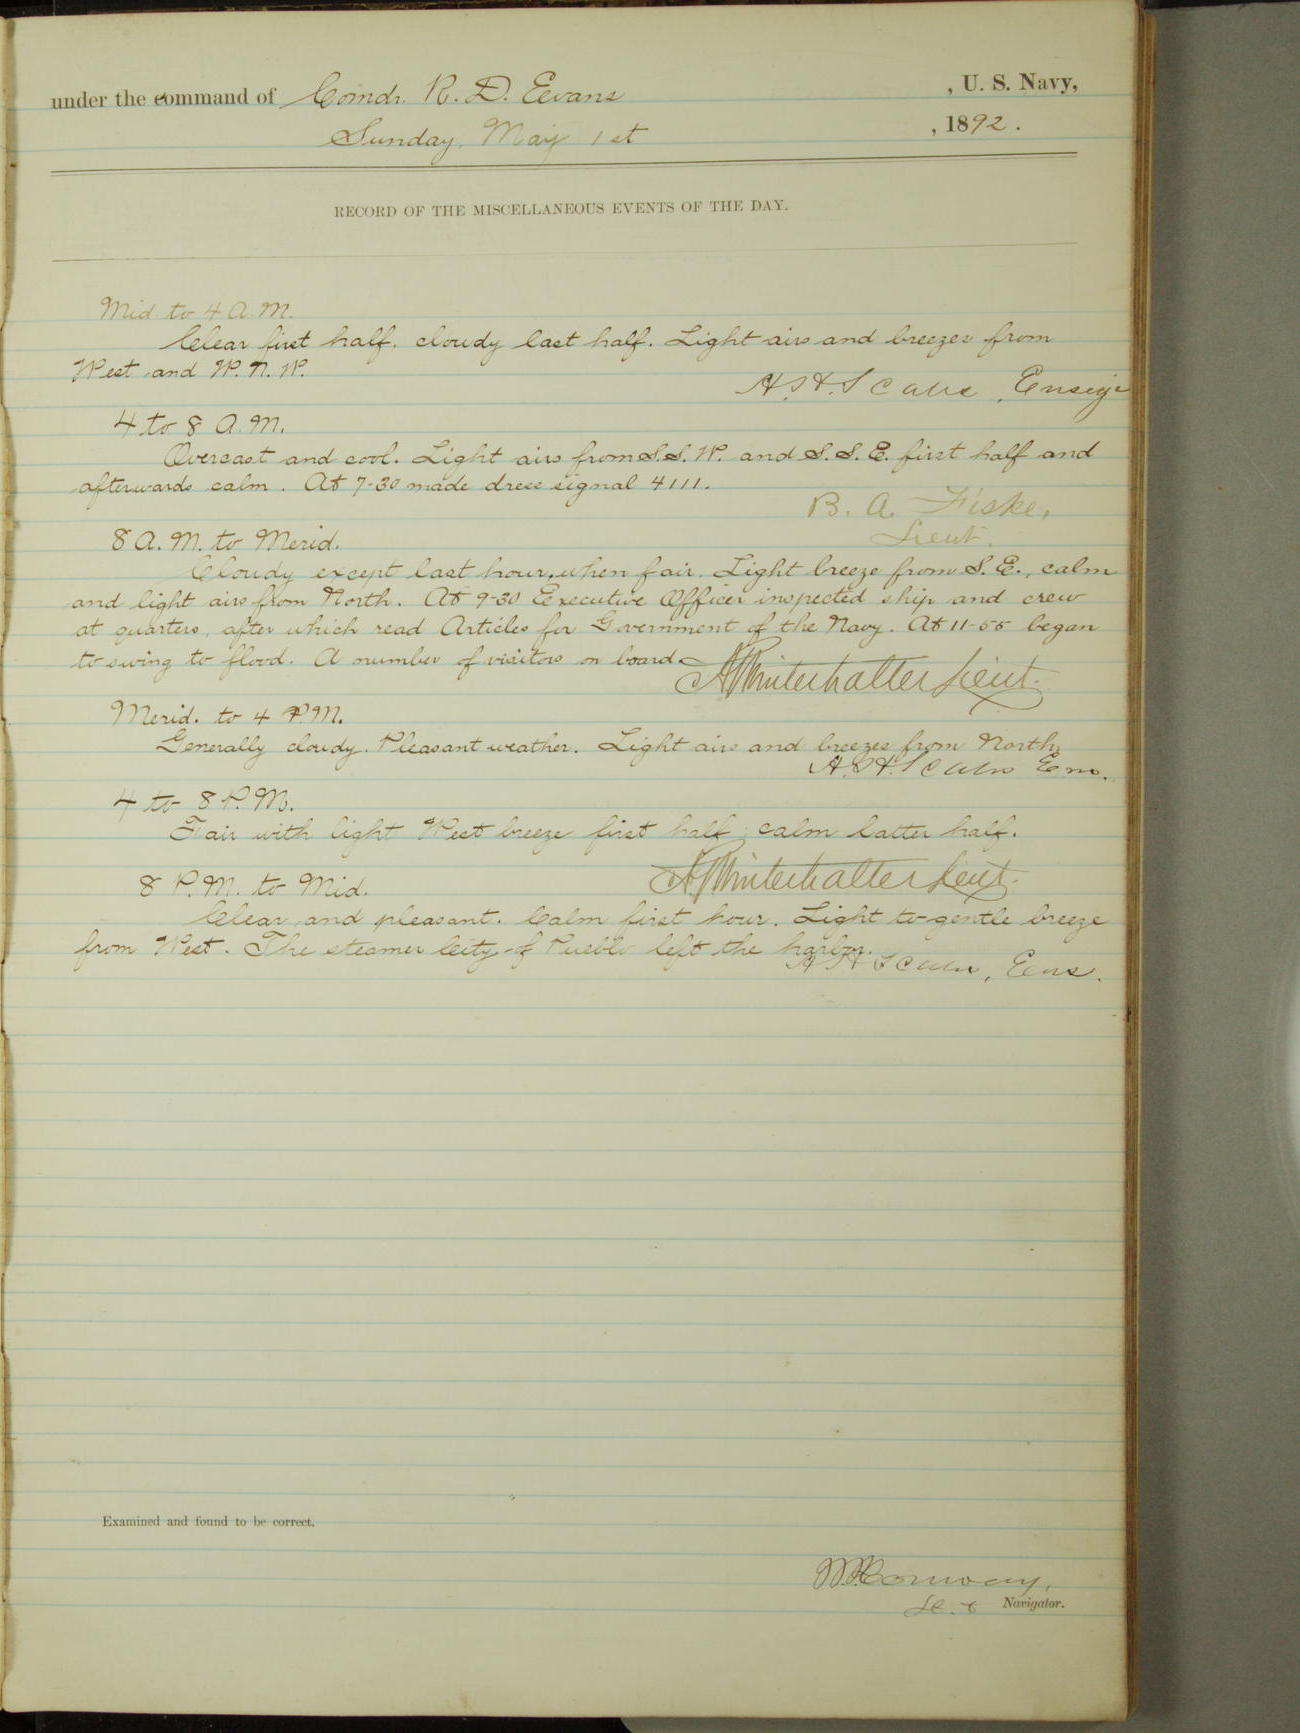 under the command of Comdr. R. D. Evans , U. S. Navy,
Sunday, May 1st , 1892.
RECORD OF THE MISCELLANEOUS EVENTS OF THE DAY.
Mid to 4 A.M.
Clear first half, cloudy last half. Light airs and breezes from
West and W. N. W.
A.H. Scales, Ensign
4 to 8 A.M.
Overcast and cool. Light airs from S.S.W. and S.S.E. first half and
afterwards calm. At 7-30 made dress signal 4111.
B. A. Fiske,
Lieut.
8 A.M. to Merid.
Cloudy except last hour, when fair. Light breeze from S.E., calm
and light airs from North. At 9-30 Executive Officer inspected ship and crew
at quarters, after which read Articles for Government of the Navy. At 11-55 began
to swing to flood. A number of visitors on board.
A Winterhalter Lieut.
Merid. to 4 P.M.
Generally cloudy. Pleasant weather. Light airs and breezes from North.
A.H. Scales Ens.
4 to 8 P.M.
Fair with light West breeze first half, calm latter half.
A Winterhalter Lieut.
8 P.M. to Mid.
Clear and pleasant. Calm first hour. Light to gentle breeze
from West. The steamer City of Puebla left the harbor.
A H Scales, Ens.
Examined and found to be correct.
W. Conway,
Lieut Navigator.